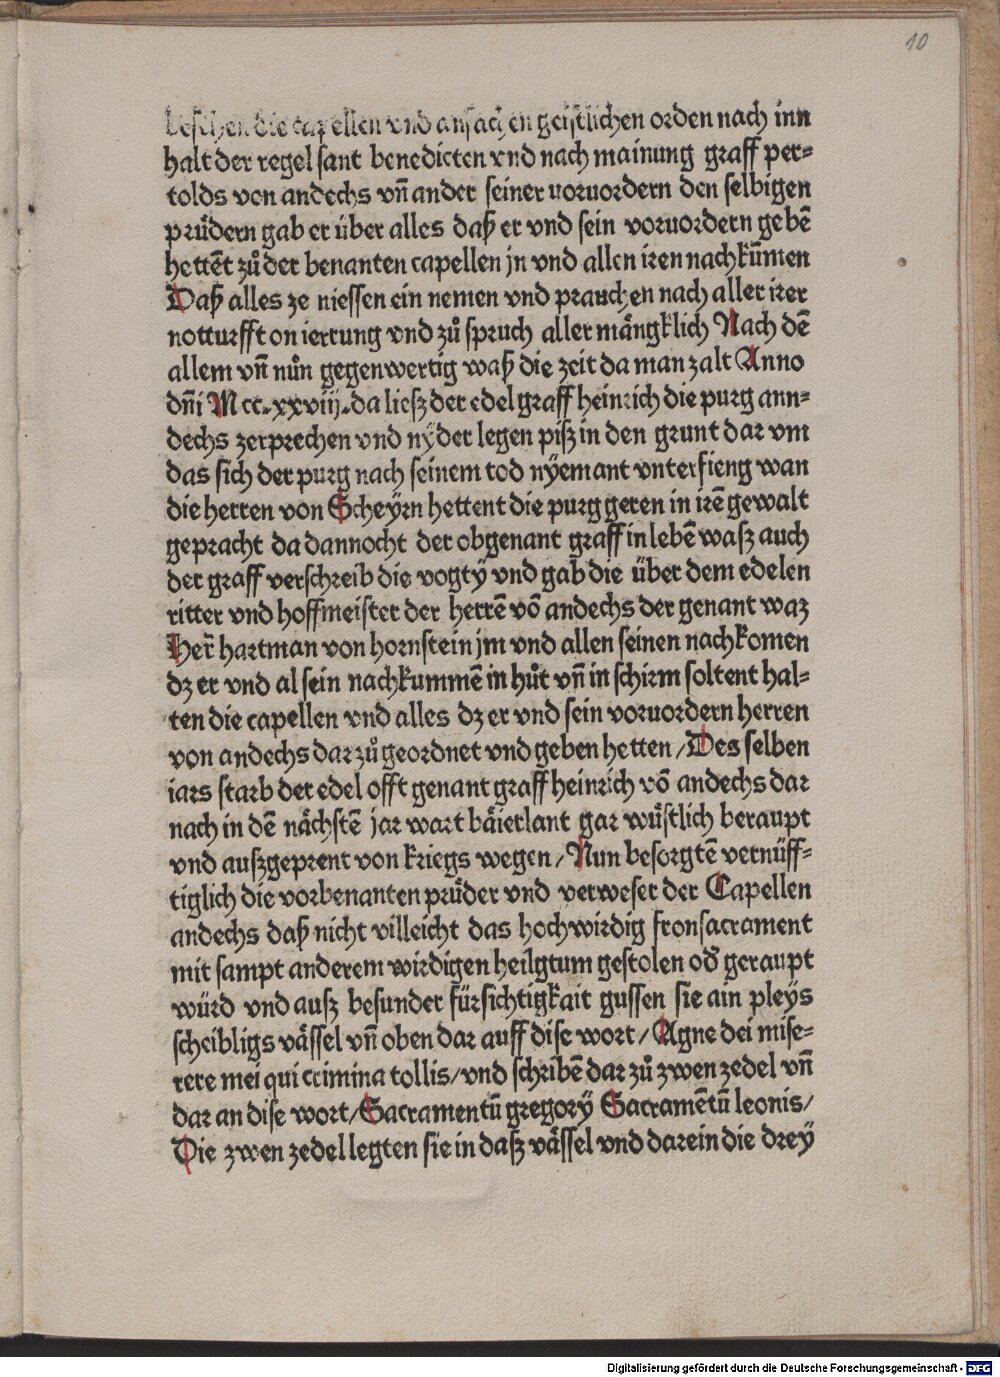 10
beschen die capellen vnd ansachen geistlichen orden nach inn
halt der regel sant benedicten vnd nach mainung graff per⸗
tolds von andechs vn̄ ander seiner uoruordern den selbigen
pruͤdern gab er über alles daß er vnd sein voruordern gebē
hettēt zuͦ der benanten capellen jn vnd allen iren nachkūmen
Daß alles ze niessen ein nemen vnd prauchen nach aller irer
notturfft on ierrung vnd zuͦ spruch aller maͤngklich Nach dē
allem vn̄ nuͦn gegenwertig waß die zeit da man zalt Anno
dn̄i Mcc.xxviij.da liesz der edel graff heinrich die purg ann⸗
dechs zerprechen vnd nÿder legen pisz in den grunt dar vm
das sich der purg nach seinem tod nÿemant vnterfieng wan
die herren von Scheÿrn hettent die purg geren in irē gewalt
gepracht da dannocht der obgenant graff in lebē wasz auch
der graff verschreib die vogtÿ vnd gab die über dem edelen
ritter vnd hoffmeister der herrē vō andechs der genant waz
Her̄ hartman von hornstein jm vnd allen seinen nachkomen
dz er vnd al sein nachkummē in huͦt vn̄ in schirm soltent hal⸗
ten die capellen vnd alles dz er vnd sein voruordern herren
von andechs dar zuͦ geordnet vnd geben hetten/Des selben
iars starb der edel offt genant graff heinrich vō andechs dar
nach in dē naͤchstē jar wart baͤierlant gar wuͤstlich beraupt
vnd auszgeprent von kriegs wegen/Nun besorgtē vernüff⸗
tiglich die vorbenanten pruͤder vnd verweser der Capellen
andechs daß nicht villeicht das hochwirdig fronsacrament
mit sampt anderem wirdigen heilgtum gestolen od̄ geraupt
würd vnd ausz besunder fürsichtigkait gussen sie ain pleÿs
scheibligs vaͤssel vn̄ oben dar auff dise wort/Agne dei mise⸗
rere mei qui crimina tollis/vnd schribē dar zuͦ zwen zedel vn̄
dar an dise wort/Sacramentū gregory Sacramētū leonis/
Die zwen zedel legten sie in dasz vaͤssel vnd darein die drey
Digitalisierung gefördert durch die Deutsche Forschungsgemeinschaft - DFG